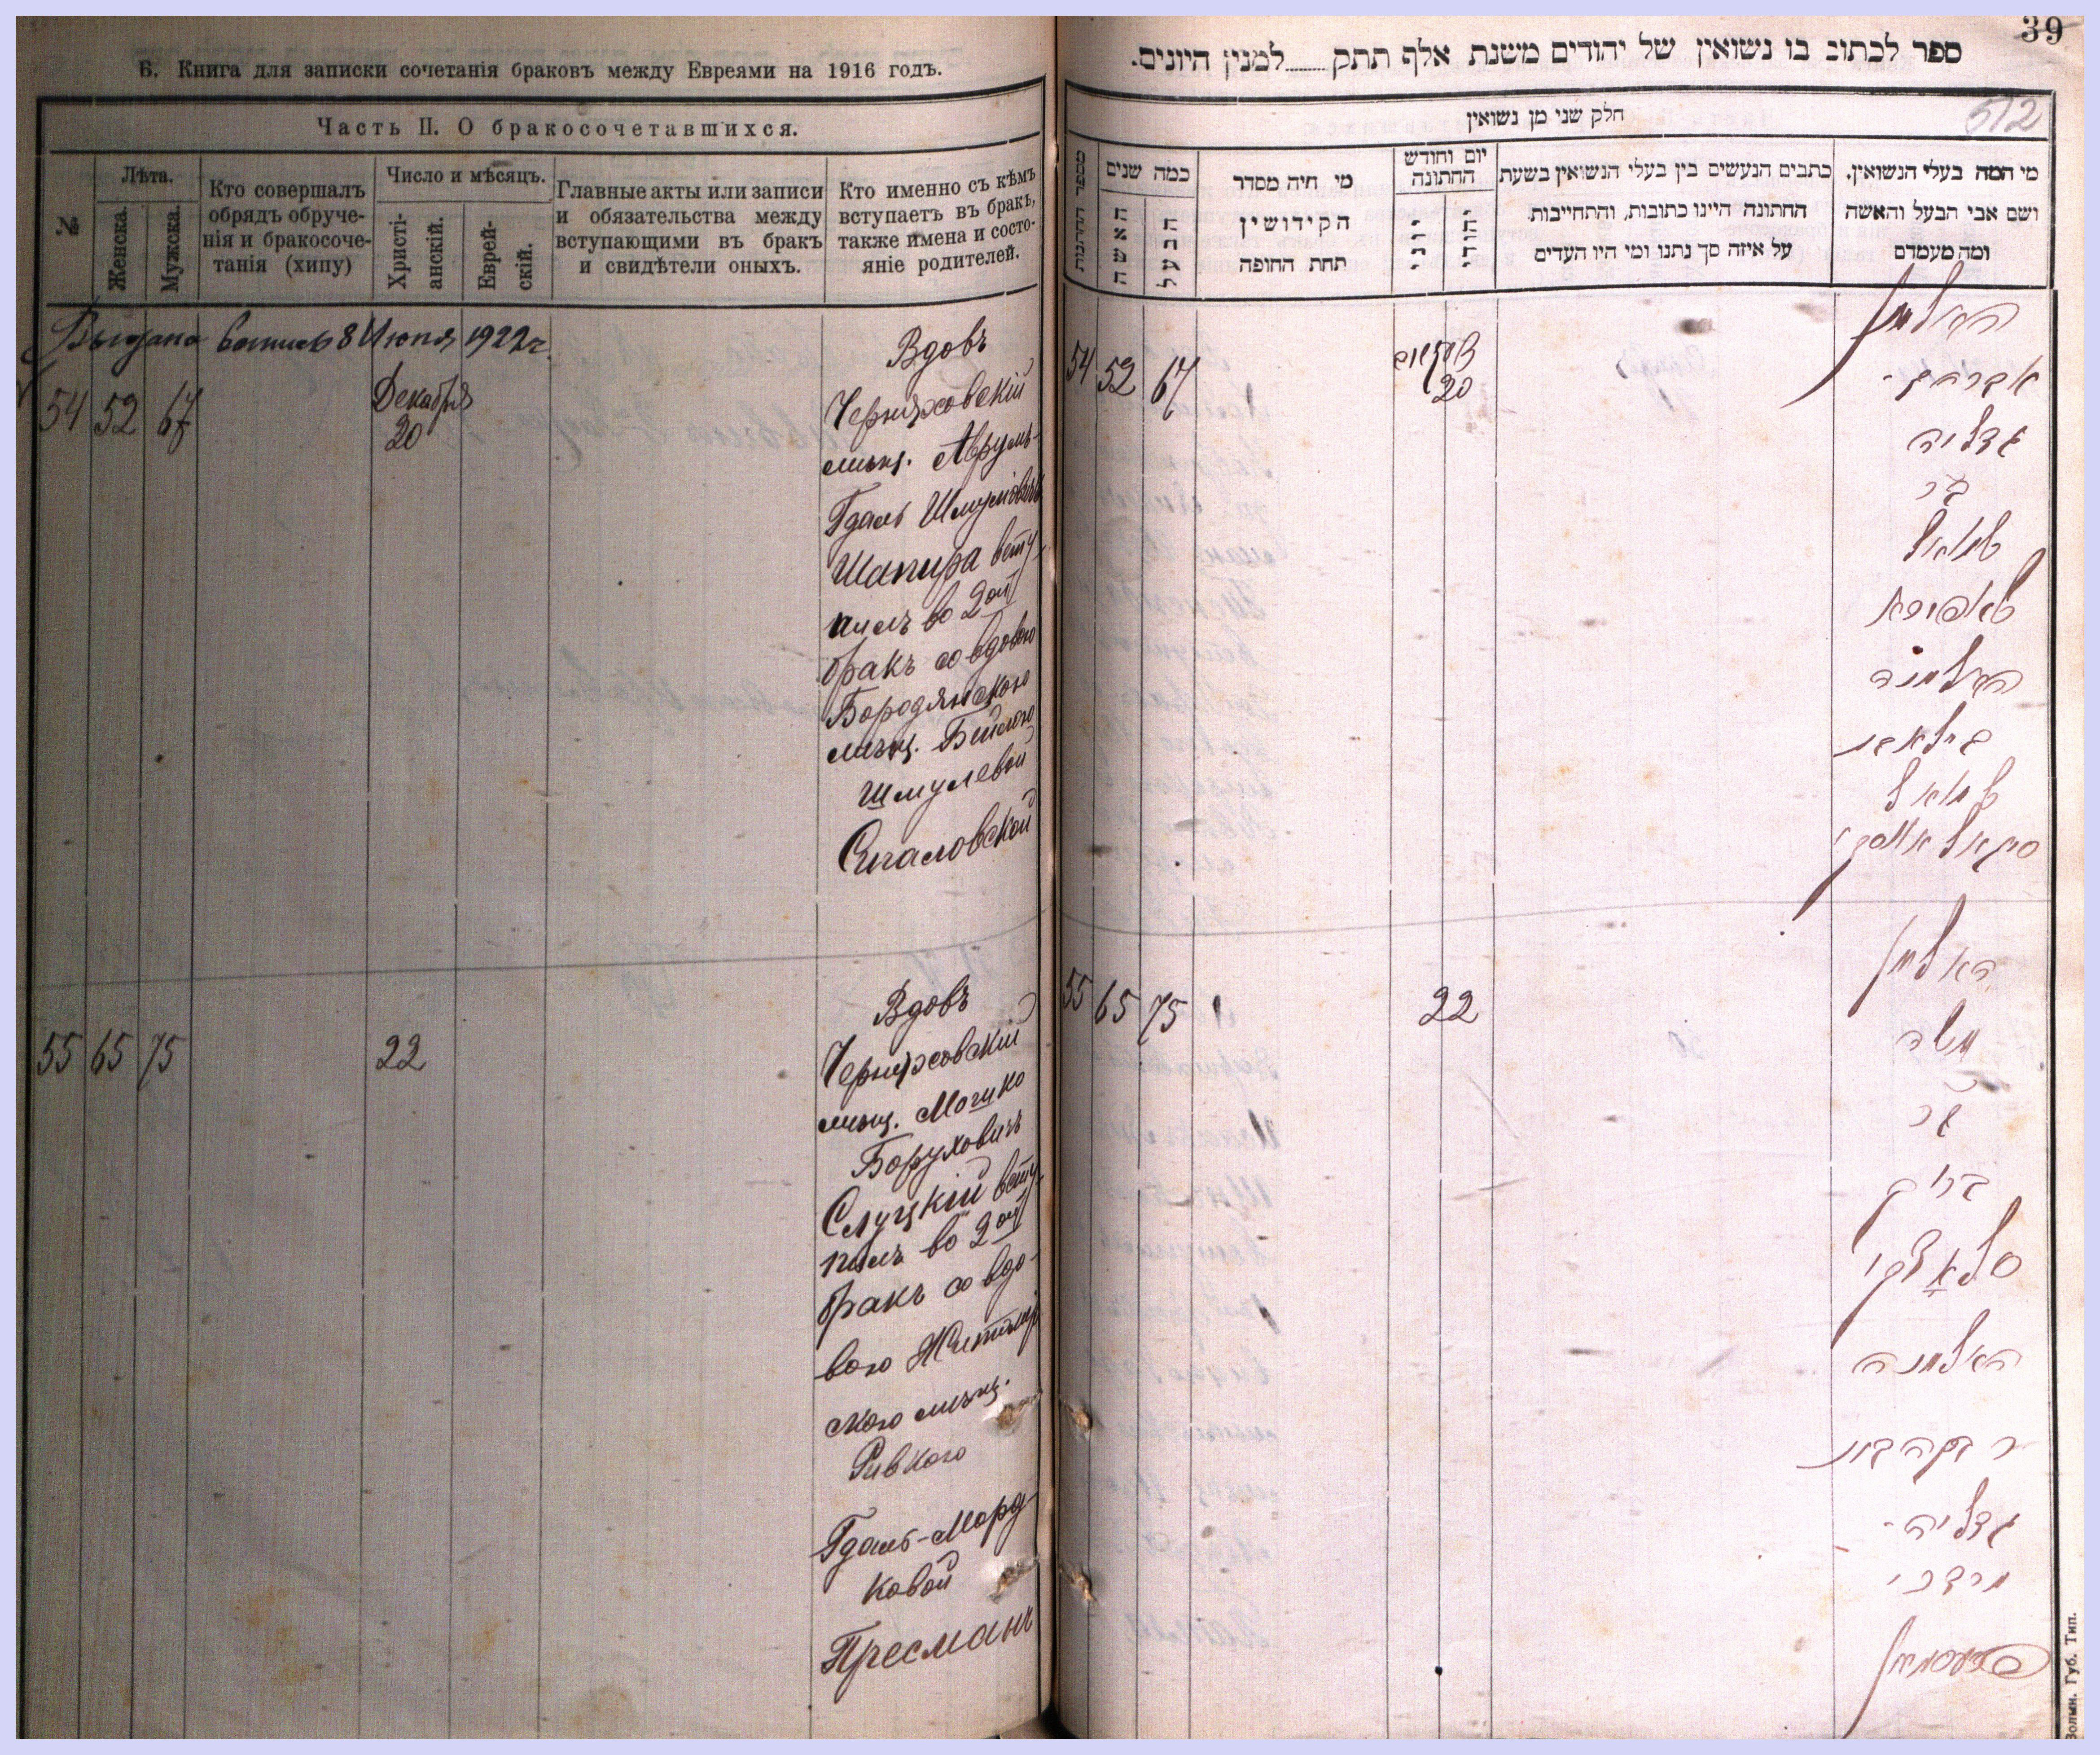 В. Книга для записки сочетанія браковъ между Евреями на 1916 годъ.
Часть II. О бракосочетавшихся.
№
Лѣта.
Женска.
Мужска.
Кто совершалъ
обрядъ обруче-
нія и бракосоче-
танія (хипу)
Число и мѣсяцъ.
Христі-
анскій.
Еврей-
скій.
Главные акты или записи
и обязательства между
вступающими въ бракъ
и свидѣтели оныхъ.
Кто именно съ кѣмъ
вступаетъ въ бракъ,
также имена и состо-
яніе родителей.
Выдана выпись 8 Июня 1922 г.
54 52 67
Декабря
20
Вдовъ
Черняховскій
мѣщ. Аврумъ-
Гдаль Шмулевичъ
Шапира всту-
пилъ во 2ой
бракъ со вдовою
Бородянскою
мѣщ. Бейлою
Шмулевой
Сигаловской
55 65 75
22
Вдовъ
Черняховскій
мѣщ. Мошко
Боруховичъ
Слуцкій всту-
пилъ во 2ой
бракъ со вдо-
вою Житомір
скою мѣщ.
Ривкою
Гдаль-Морд-
ковой
Пресманъ
39
ספר לכתוב בו נשואין של יהודים משנת אלף תתק........למנין היונים.
512
חלק שני מן נשואין
מספר החתונות
כמה שנים
האשה
הבעל
מי היה מסדר
הקידושין
תחת החופה
יום וחודש
החתונה
יוני
יהודי
כתבים הנעשים בין בעלי הנשואין בשעת
החתונה היינו כתובות, והתחייבות
על איזה סך נתנו ומי היו העדים
מי המה בעלי הנשואין.
ושם אבי הבעל והאשה
ומה מעמדם
54 52 67
20
האלמן
אברהם-
גדליה
בר
שמואל
שאפירא
האלמנה
ביילא בת
שמואל
סיגאלאווסקי
55 65 75
22
האלמן
משה
בר
ברוך
סלאצקי
האלמנה
רבקה בת
גדליה-
מרדכי
פרעסמאן
Волын. Губ. Тип.